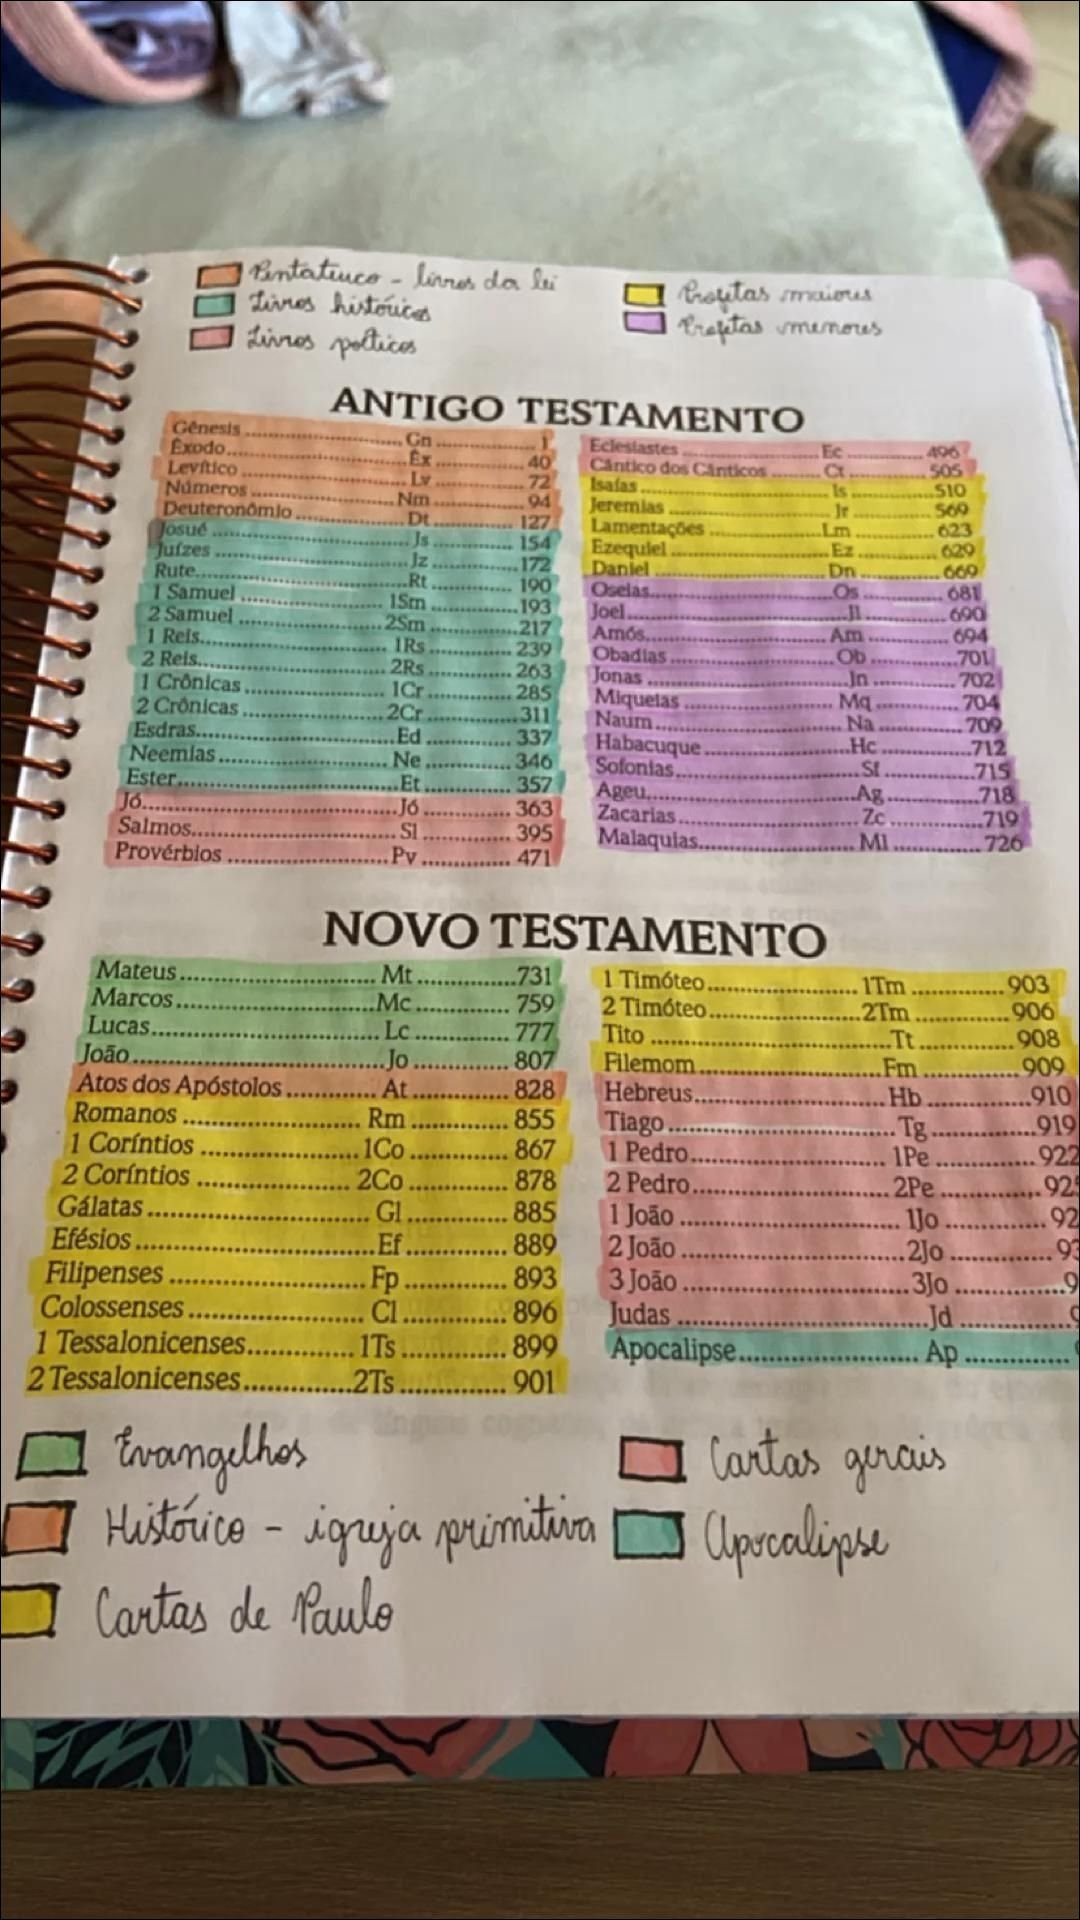 Pentateuco - livros da lei
Livros históricos
Livros poéticos
Profetas maiores
Profetas menores
ANTIGO TESTAMENTO
Gênesis ........ Gn ........ 1
Êxodo ........ Êx ........ 40
Levítico ........ Lv ........ 72
Números ........ Nm ........ 94
Deuteronômio ........ Dt ........ 127
Josué ........ Js ........ 154
Juízes ........ Jz ........ 172
Rute ........ Rt ........ 190
1 Samuel ........ 1Sm ........ 193
2 Samuel ........ 2Sm ........ 217
1 Reis ........ 1Rs ........ 239
2 Reis ........ 2Rs ........ 263
1 Crônicas ........ 1Cr ........ 285
2 Crônicas ........ 2Cr ........ 311
Esdras ........ Ed ........ 337
Neemias ........ Ne ........ 346
Ester ........ Et ........ 357
Jó ........ Jó ........ 363
Salmos ........ Sl ........ 395
Provérbios ........ Pv ........ 471
Eclesiastes ........ Ec ........ 496
Cântico dos Cânticos ........ Ct ........ 505
Isaías ........ Is ........ 510
Jeremias ........ Jr ........ 569
Lamentações ........ Lm ........ 623
Ezequiel ........ Ez ........ 629
Daniel ........ Dn ........ 669
Oseias ........ Os ........ 681
Joel ........ Jl ........ 690
Amós ........ Am ........ 694
Obadias ........ Ob ........ 701
Jonas ........ Jn ........ 702
Miqueias ........ Mq ........ 704
Naum ........ Na ........ 709
Habacuque ........ Hc ........ 712
Sofonias ........ Sf ........ 715
Ageu ........ Ag ........ 718
Zacarias ........ Zc ........ 719
Malaquias ........ Ml ........ 726
NOVO TESTAMENTO
Mateus ........ Mt ........ 731
Marcos ........ Mc ........ 759
Lucas ........ Lc ........ 777
João ........ Jo ........ 807
Atos dos Apóstolos ........ At ........ 828
Romanos ........ Rm ........ 855
1 Coríntios ........ 1Co ........ 867
2 Coríntios ........ 2Co ........ 878
Gálatas ........ Gl ........ 885
Efésios ........ Ef ........ 889
Filipenses ........ Fp ........ 893
Colossenses ........ Cl ........ 896
1 Tessalonicenses ........ 1Ts ........ 899
2 Tessalonicenses ........ 2Ts ........ 901
1 Timóteo ........ 1Tm ........ 903
2 Timóteo ........ 2Tm ........ 906
Tito ........ Tt ........ 908
Filemom ........ Fm ........ 909
Hebreus ........ Hb ........ 910
Tiago ........ Tg ........ 919
1 Pedro ........ 1Pe ........ 922
2 Pedro ........ 2Pe ........
1 João ........ 1Jo ........
2 João ........ 2Jo ........
3 João ........ 3Jo ........
Judas ........ Jd ........
Apocalipse ........ Ap ........
Evangelhos
Histórico - igreja primitiva
Cartas de Paulo
Cartas gerais
Apocalipse